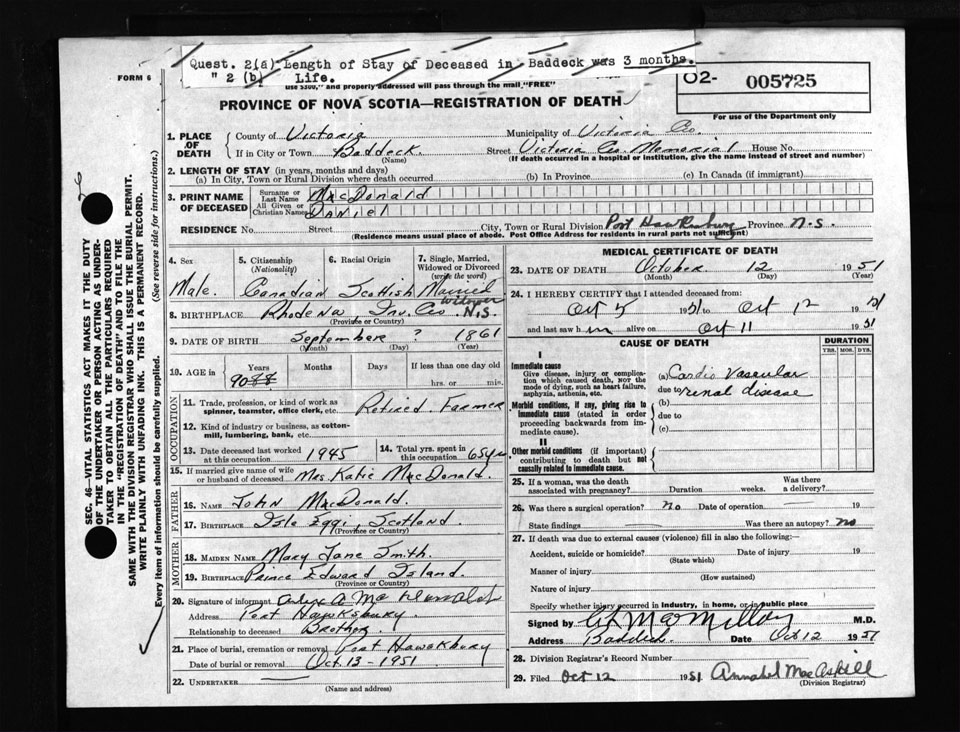 Quest. 2(a) Length of Stay of Deceased in Baddeck was 3 months.
" 2 (b) Life.
FORM 6
use $300," and property addressed will pass through the mail "FREE"
02- 005725
PROVINCE OF NOVA SCOTIA—REGISTRATION OF DEATH
For use of the Department only
1. PLACE OF DEATH
County of Victoria Municipality of Victoria Co.
If in City or Town Baddeck Street Victoria Co. Memorial House No.
(Name) (If death occurred in a hospital or institution, give the name instead of street and number)
2. LENGTH OF STAY (in years, months and days)
(a) In City, Town or Rural Division where death occurred (b) In Province (c) In Canada (if immigrant)
3. PRINT NAME OF DECEASED
Surname or Last Name MacDonald
All Given or Christian Names Daniel
RESIDENCE No. Street City, Town or Rural Division Port Hawkesbury Province N.S.
(Residence means usual place of abode. Post Office Address for residents in rural parts not sufficient)
4. Sex
Male.
5. Citizenship (Nationality)
Canadian
6. Racial Origin
Scottish
7. Single, Married, Widowed or Divorced (write the word)
Married
Widower
8. BIRTHPLACE Rhodena, Inv. Co. N.S.
(Province or Country)
9. DATE OF BIRTH Septembere ? 1861
(Month) (Day) (Year)
10. AGE in
Years Months Days If less than one day old
90 hrs. or min.
OCCUPATION
11. Trade, profession, or kind of work as spinner, teamster, office clerk, etc. Retired Farmer
12. Kind of industry or business, as cotton-mill, lumbering, bank, etc.
13. Date deceased last worked at this occupation 1945
14. Total yrs. spent in this occupation 65 yrs
15. If married give name of wife or husband of deceased Mrs Katie MacDonald.
FATHER
16. NAME John MacDonald.
17. BIRTHPLACE Isle Eggi, Scotland.
(Province or Country)
MOTHER
18. MAIDEN NAME Mary Jane Smith.
19. BIRTHPLACE Prince Edward Island.
(Province or Country)
20. Signature of informant A MacDonald
Address Port Hawksbury
Relationship to deceased Brother.
21. Place of burial, cremation or removal Port Hawakbury
Date of burial or removal Oct. 13 - 1951
22. UNDERTAKER
(Name and address)
MEDICAL CERTIFICATE OF DEATH
23. DATE OF DEATH October 12 1951
(Month) (Day) (Year)
24. I HEREBY CERTIFY that I attended deceased from:
Oct 5 1951 to Oct 12 1951
and last saw him alive on Oct 11 1951
CAUSE OF DEATH
DURATION
YRS. MOS. DYS.
I
Immediate cause
Give disease, injury or complication which caused death, not the mode of dying, such as heart failure, asphyxia, asthenia, etc.
(a) Cardio Vascular
due to renal disease
Morbid conditions, if any, giving rise to immediate cause (stated in order proceeding backwards from immediate cause).
(b)
due to
(c)
II
Other morbid conditions (if important) contributing to death but not causally related to immediate cause.
25. If a woman, was the death associated with pregnancy? Duration weeks. Was there a delivery?
26. Was there a surgical operation? no Date of operation 19
State findings Was there an autopsy? no
27. If death was due to external causes (violence) fill in also the following:—
Accident, suicide or homicide? Date of injury 19
(State which)
Manner of injury
(How sustained)
Nature of injury
Specify whether injury occurred in industry, in home, or in public place
Signed by MacMillan M.D.
Address Baddeck. Date Oct 12 1951
28. Division Registrar's Record Number
29. Filed Oct 12 1951 Annabel MacAskill
(Division Registrar)
SEC. 46—VITAL STATISTICS ACT MAKES IT THE DUTY
OF THE UNDERTAKER OR PERSON ACTING AS UNDER-
TAKER TO OBTAIN ALL THE PARTICULARS REQUIRED
IN THE "REGISTRATION OF DEATH" AND TO FILE THE
SAME WITH THE DIVISION REGISTRAR WHO SHALL ISSUE THE BURIAL PERMIT.
WRITE PLAINLY WITH UNFADING INK. THIS IS A PERMANENT RECORD.
Every item of information should be carefully supplied. (See reverse side for instructions.)